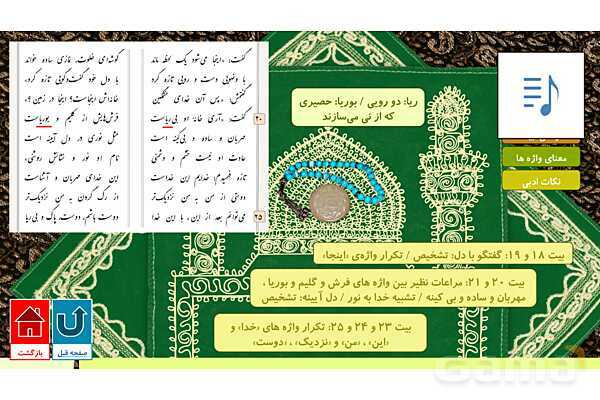 گفت، اینجا می‌شود یک لحظه ماند
گوشه‌ای خلوت، نمازی ساده خواند
با وضویی دست و رویی تازه کرد
با دل خود گفت‌وگویی تازه کرد
گفتمش، پس آن خدای خشمگین
خانه‌اش اینجاست؟ اینجا در زمین؟
گفت: آری خانهٔ او بی‌ریاست
فرش‌هایش از گلیم و بوریاست
۲۰
مهربان و ساده و بی‌کینه است
مثل نوری در دل آیینه است
عادت او نیست خشم و دشمنی
نام او نور و نشانش روشنی
تازه فهمیدم: خدایم این خداست
این خدای مهربان و آشناست
دوستی از من به من نزدیک‌تر
از رگ گردن به من نزدیک‌تر
می‌توانم بعد از این، با این خدا
دوست باشم، دوست، پاک و بی‌ریا
۲۵
ریا: دو رویی / بوریا: حصیری
که از نی می‌سازند
معنای واژه ها
نکات ادبی
بیت ۱۸ و ۱۹: گفتگو با دل: تشخیص / تکرار واژه‌ی «اینجا»
بیت ۲۰ و ۲۱: مراعات نظیر بین واژه های فرش و گلیم و بوریا ،
مهربان و ساده و بی کینه / تشبیه خدا به نور / دل آیینه: تشخیص
بیت ۲۳ و ۲۴ و ۲۵: تکرار واژه های «خدا» و
«این» ، «من» و «نزدیک» ، «دوست»
صفحه قبل
بازگشت
Gama